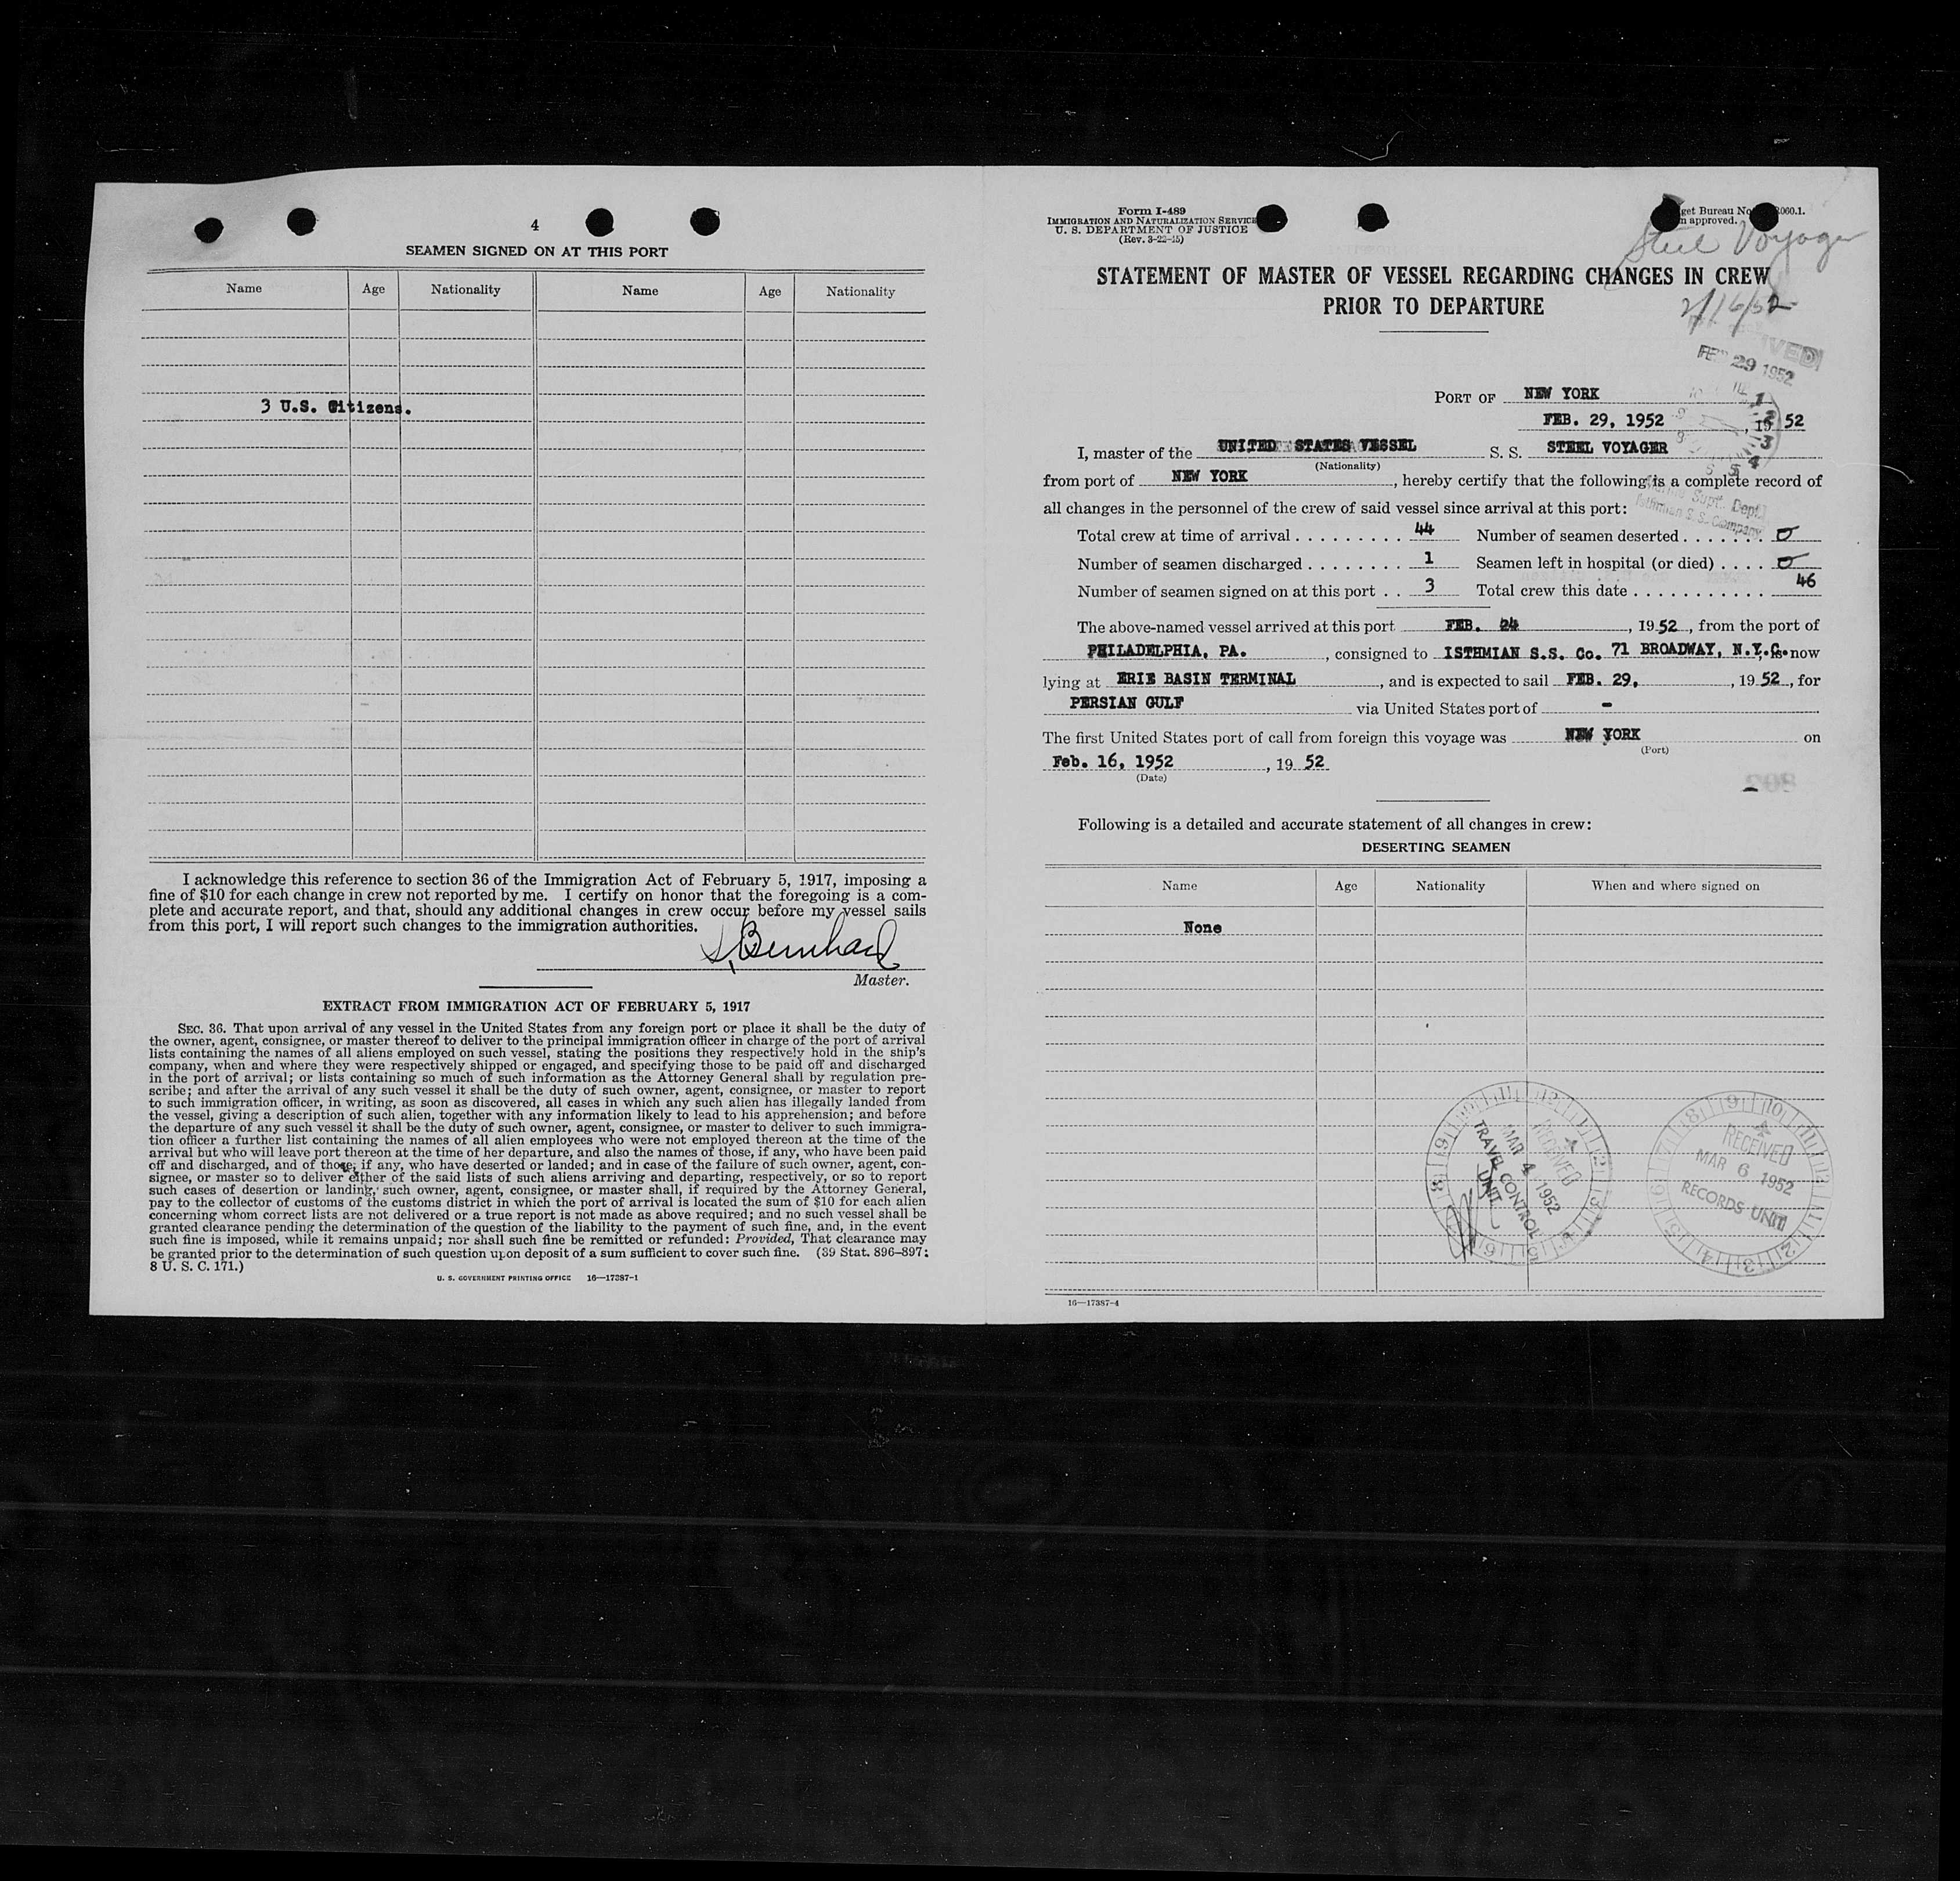 4
SEAMEN SIGNED ON AT THIS PORT
Name Age Nationality Name Age Nationality
3 U.S. Citizens.
I acknowledge this reference to section 36 of the Immigration Act of February 5, 1917, imposing a
fine of $10 for each change in crew not reported by me. I certify on honor that the foregoing is a com-
plete and accurate report, and that, should any additional changes in crew occur before my vessel sails
from this port, I will report such changes to the immigration authorities.
S. Bernhard
Master.
EXTRACT FROM IMMIGRATION ACT OF FEBRUARY 5, 1917
SEC. 36. That upon arrival of any vessel in the United States from any foreign port or place it shall be the duty of
the owner, agent, consignee, or master thereof to deliver to the principal immigration officer in charge of the port of arrival
lists containing the names of all aliens employed on such vessel, stating the positions they respectively hold in the ship's
company, when and where they were respectively shipped or engaged, and specifying those to be paid off and discharged
in the port of arrival; or lists containing so much of such information as the Attorney General shall by regulation pre-
scribe; and after the arrival of any such vessel it shall be the duty of such owner, agent, consignee, or master to report
to such immigration officer, in writing, as soon as discovered, all cases in which any such alien has illegally landed from
the vessel, giving a description of such alien, together with any information likely to lead to his apprehension; and before
the departure of any such vessel it shall be the duty of such owner, agent, consignee, or master to deliver to such immigra-
tion officer a further list containing the names of all alien employees who were not employed thereon at the time of the
arrival but who will leave port thereon at the time of her departure, and also the names of those, if any, who have been paid
off and discharged, and of those, if any, who have deserted or landed; and in case of the failure of such owner, agent, con-
signee, or master so to deliver either of the said lists of such aliens arriving and departing, respectively, or so to report
such cases of desertion or landing, such owner, agent, consignee, or master shall, if required by the Attorney General,
pay to the collector of customs of the customs district in which the port of arrival is located the sum of $10 for each alien
concerning whom correct lists are not delivered or a true report is not made as above required; and no such vessel shall be
granted clearance pending the determination of the question of the liability to the payment of such fine, and, in the event
such fine is imposed, while it remains unpaid; nor shall such fine be remitted or refunded: Provided, That clearance may
be granted prior to the determination of such question upon deposit of a sum sufficient to cover such fine. (39 Stat. 896–897;
8 U. S. C. 171.)
U. S. GOVERNMENT PRINTING OFFICE 16—17387-1
Form I-489
IMMIGRATION AND NATURALIZATION SERVICE
U. S. DEPARTMENT OF JUSTICE
(Rev. 3-22-45)
get Bureau No. 060.1.
n approved.
Steel Voyager
STATEMENT OF MASTER OF VESSEL REGARDING CHANGES IN CREW
PRIOR TO DEPARTURE
2/16/52
FEB 29 1952
PORT OF NEW YORK
FEB. 29, 1952, 1952
I, master of the UNITED STATES VESSEL S. S. STEEL VOYAGER
(Nationality)
from port of NEW YORK, hereby certify that the following is a complete record of
all changes in the personnel of the crew of said vessel since arrival at this port:
Supt. Dept.
Isthmian S.S. Company
Total crew at time of arrival 44 Number of seamen deserted 0
Number of seamen discharged 1 Seamen left in hospital (or died) 0
Number of seamen signed on at this port 3 Total crew this date 46
The above-named vessel arrived at this port FEB. 24, 1952, from the port of
PHILADELPHIA, PA., consigned to ISTHMIAN S.S. Co. 71 BROADWAY, N.Y.C. is now
lying at ERIE BASIN TERMINAL, and is expected to sail FEB. 29, 1952, for
PERSIAN GULF via United States port of -
The first United States port of call from foreign this voyage was NEW YORK on
(Port)
Feb. 16, 1952, 1952
(Date)
Following is a detailed and accurate statement of all changes in crew:
DESERTING SEAMEN
Name Age Nationality When and where signed on
None
RECEIVED
MAR 4 1952
TRAVEL CONTROL
UNIT
RECEIVED
MAR 6 1952
RECORDS UNIT
16—17387-4